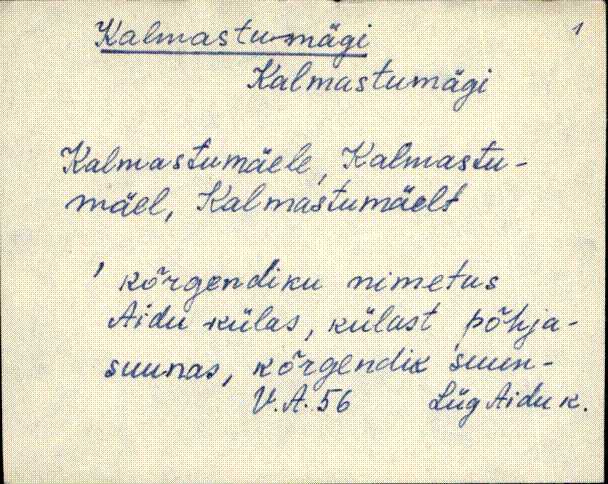 Kalmastu-mägi 1
Kalmastumägi
Kalmastumäele, Kalmastu-
mäel, Kalmastumäelt
' kõrgendiku nimetus
Aidu külas, külast põhja-
suunas, kõrgendik suun-
V.A. 56 Lüg Aidu k.